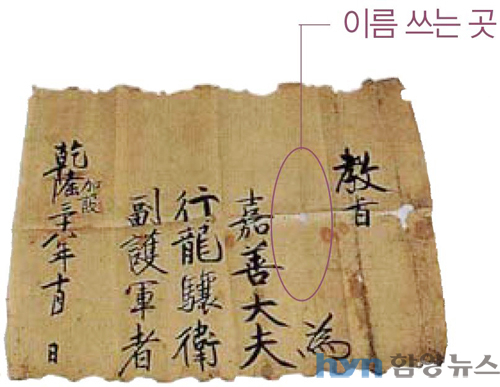 이름 쓰는 곳
教旨
為
嘉善大夫
行龍驤衛
副護軍者
乾隆三十八年十月 日
加設
hyn 함양뉴스